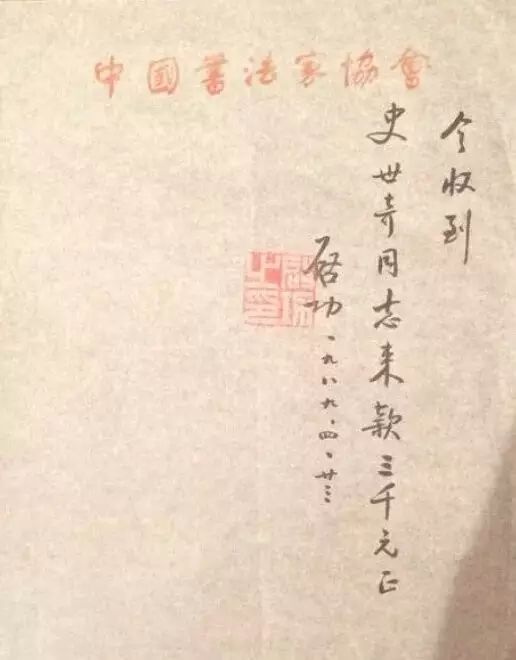 中國書法家協會
今收到
史世奇同志来款三千元正
启功一九八九、四、廿三